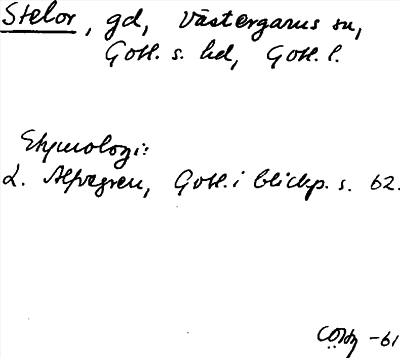 Stelor, gd, Västergarns sn,
Gotl. s. hd, Gotl. l.
Etymologi:
L. Alfvegren, Gotl. i blickp. s. 62.
-61